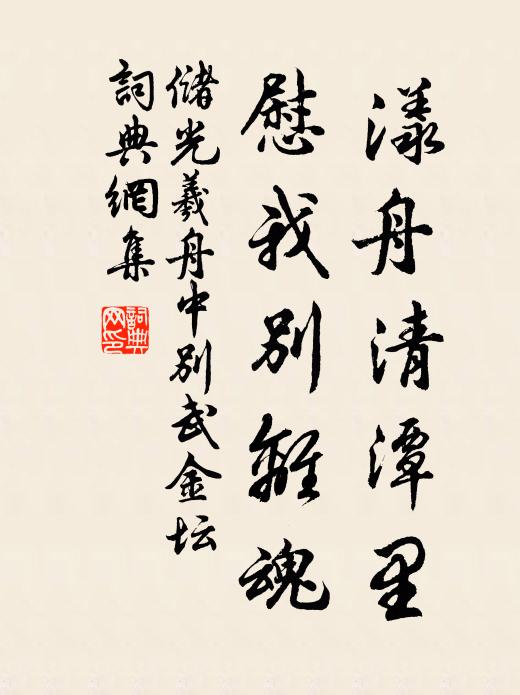 漾舟清潭里
慰我别離魂
儲光羲舟中别武金坛
詞典網集
詞典
网印